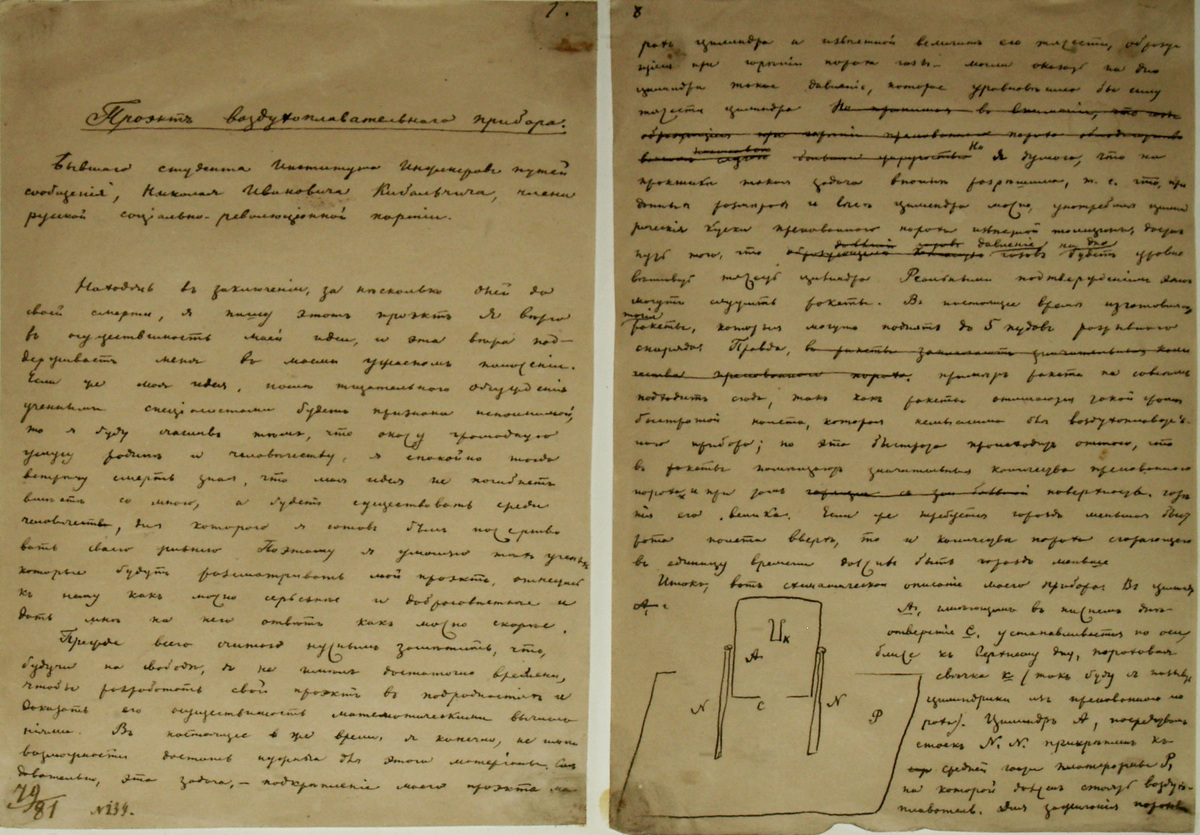 1.
Проэктъ воздухоплавательнаго прибора.
Бывшаго студента Института Инженеровъ путей
сообщенія, Николая Ивановича Кибальчича, члена
русской соціально-революціонной партіи.
Находясь въ заключеніи, за нѣсколько дней до
своей смерти, я пишу этотъ проэктъ. Я вѣрю
въ осуществимость моей идеи, и эта вѣра под-
держиваетъ меня въ моемъ ужасномъ положеніи.
Если же моя идея, послѣ тщательнаго обсужденія
учеными спеціалистами будетъ признана исполнимой,
то я буду счастливъ тѣмъ, что окажу громадную
услугу родинѣ и человѣчеству, я спокойно тогда
встрѣчу смерть зная, что моя идея не погибнетъ
вмѣстѣ со мною, а будетъ существовать среди
человѣчества, для котораго я готовъ былъ пожертво
вать своею жизнью Поэтому я умоляю тѣхъ ученыхъ
которые будутъ разсматривать мой проэктъ, отнестись
къ нему какъ можно серьезнѣе и добросовѣстнѣе и
дать мнѣ на него отвѣтъ какъ можно скорѣе.
Прежде всего считаю нужнымъ замѣтить, что,
будучи на свободѣ, я не имѣлъ достаточно времени,
чтобы разработать свой проэктъ въ подробностяхъ и
доказать его осуществимость математическими вычисле
ніями. Въ настоящее же время я конечно, не имѣю
возможности достать нужные для этого матеріалы. Слѣ
довательно, эта задача, – подкрѣпленіе моего проэкта ма
79/81 №139.
8
ракъ цилиндра и извѣстной величинѣ его тяжести, образую
щіеся при горѣніи пороха газы могли оказать на дно
цилиндра такое давленіе, которое уравновѣсило бы силу
тяжести цилиндра
Но я думаю, что на
практикѣ такая задача вполнѣ разрѣшима, т. е. что, при
данныхъ размѣрахъ и вѣсѣ цилиндра можно, употребляя цилин
рическіе куски пресованнаго пороха извѣстной толщины, достиг
нуть того, что давленіе газовъ на дно будетъ уравно
вѣшивать тяжесть цилиндра Реальнымъ подтвержденіемъ
могутъ служить ракеты. Въ настоящее время изготовляютъ
такія ракеты, которыя могутъ поднять до 5 пудовъ разрывного
снаряда. Правда, въ ракеты
чества пресованнаго пороха. примѣръ ракетъ не совсѣмъ
подходитъ сюда, такъ какъ ракеты отличаются такой
быстротой полета, которая немыслима для воздухоплаватель
наго прибора; но эта быстрота происходитъ оттого, что
въ ракеты помѣщаютъ значительныя количества пресованнаго
пороха и при этомъ поверхность горѣ
нія его велика. Если же требуется гораздо меньшая быст
рота полета вверхъ, то и количество пороха сгорающаго
въ единицу времени должно быть гораздо меньше
Итакъ, вотъ схематическое описаніе моего прибора: Въ цилин
А, имѣющемъ въ нижнемъ днѣ
отверстіе С, устанавливается по оси
ближе къ верхнему дну, пороховая
свѣчка К (такъ буду я называть
цилиндрики изъ пресованнаго по
роха). Цилиндръ А, посредствомъ
стоекъ N. N. прикрѣпленъ къ
средней части платформы Р,
на которой долженъ стоять воздухо-
плаватель. Для зажиганія пороховой
К
А
С
N
N
Р